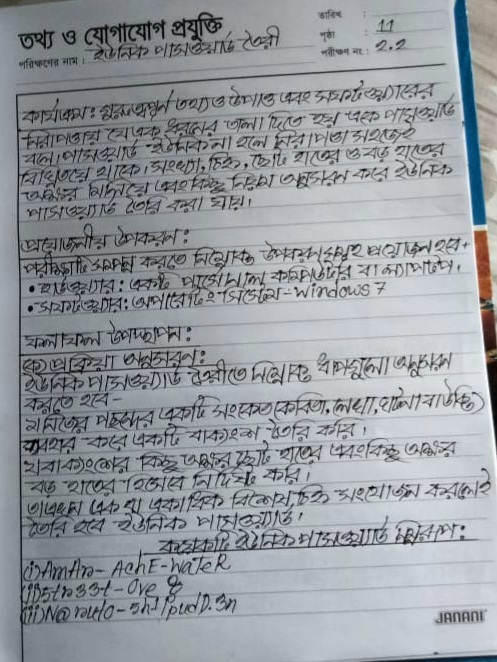 তথ্য ও যোগাযোগ প্রযুক্তি
তারিখ :
পৃষ্ঠা : 11
পরীক্ষণ নং : 2.2
পরিক্ষণের নাম : ইউনিক পাসওয়ার্ড তৈরী
কার্যক্রম: গুরুত্বপূর্ণ তথ্য ও উপাত্ত এবং সফটওয়্যারের
নিরাপত্তায় যে এক ধরনের তালা দিতে হয় একে পাসওয়ার্ড
বলে। পাসওয়ার্ড ইউনিক না হলে নিরাপত্তা সহজেই
বিঘ্নিত হয়ে থাকে। সংখ্যা, চিহ্ন, ছোট হাতের ও বড় হাতের
অক্ষর মিলিয়ে এবং কিছু নিয়ম অনুসরন করে ইউনিক
পাসওয়ার্ড তৈরি করা যায়।
প্রয়োজনীয় উপকরণ:
পরীক্ষাটি সম্পন্ন করতে নিম্নোক্ত উপকরণসমূহ প্রয়োজন হবে-
• হার্ডওয়্যার: একটি পার্সোনাল কম্পিউটার বা ল্যাপটপ।
• সফটওয়্যার: অপারেটিং সিস্টেম - Windows 7
ফলাফল উপস্থাপন:
(ক) প্রক্রিয়া অনুসরণ:
ইউনিক পাসওয়ার্ড তৈরীতে নিম্নোক্ত ধাপগুলো অনুসরন
করতে হবে-
পছন্দের একটি সংকেত (কবিতা, লেখা, ঘটনা বা উক্তি)
ব্যবহার করে একটি বাক্যাংশ তৈরি করি।
বাক্যাংশের কিছু অক্ষর ছোট হাতের এবং কিছু অক্ষর
বড় হাতের হিসেবে নির্দিষ্ট করি।
এক বা একাধিক বিশেষ চিহ্ন সংযোজন করলেই
তৈরি হবে ইউনিক পাসওয়ার্ড।
কয়েকটি ইউনিক পাসওয়ার্ড নিরূপ:
(i) AmAn- AchE-WaTeR
(ii) 5tr33t-Ove
(iii) N@ruto-
JANANI